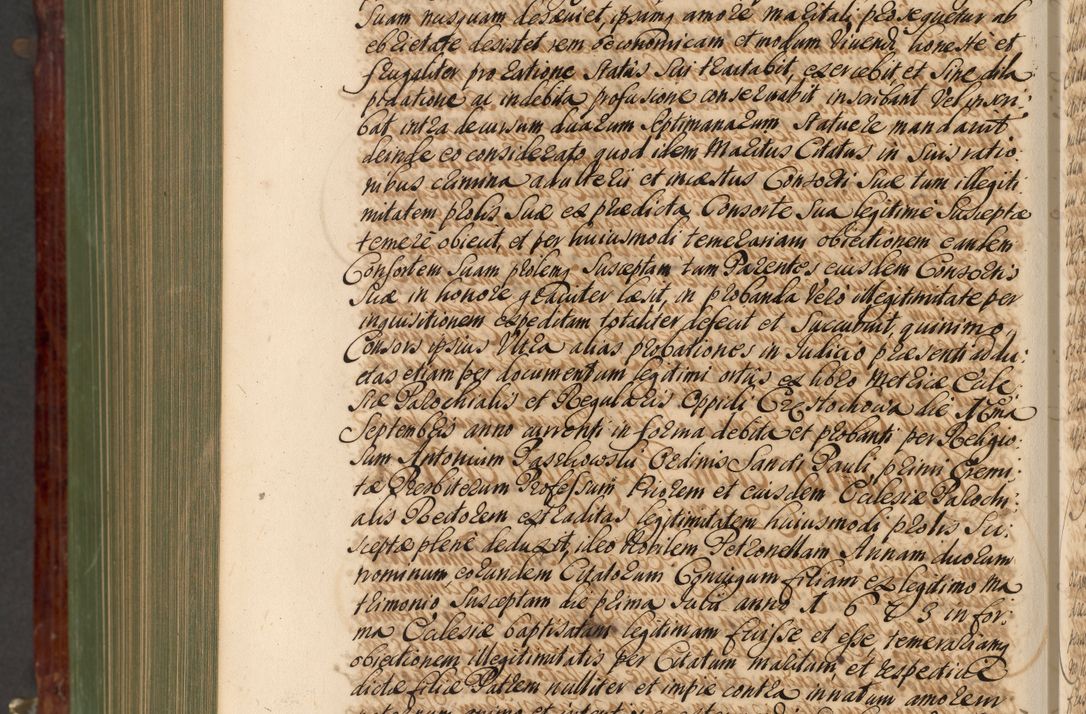 Suam nusquam desæuiet, ipsamq amore maritali prosequetur ab
ebrietate desistet rem œconomicam et modum Viuendi honeste et
frugaliter pro ratione Status Sui tractabit, exercebit, et Sine dila
pidatione ac indebita profusione conseruabit inscribant Vel inscri:
bat intra decursum duarum Septimanarum Statuere mandauit
deinde eo considerato quod idem Maritus Citatus in Suis ratio
nibus crimina adulterii et incæstus Consorti Suæ tum illegiti
mitatem prolis Suæ ex prædicta Consorte Sua legitime Susceptæ
temere obiecit, et per huiusmodi temerariam obiectionem eandem
Consortem Suam prolemq Susceptam tum Parentes eiusdem Consortis
Suæ in honore grauiter læsit, in probanda Vero illegitimitate per
inquisitionem expeditam totaliter defecit et Succubuit, quinimo
Consors ipsius Ultra alias probationes in Judicio præsenti addu:
ctas etiam per documentum legitimi ortus ex libro Metricæ Eccle
siæ Parochialis et Regularis Oppidi Częstochowa die 16ma
Septembris anno currenti in forma debita et probanti per Religio
sum Antonium Paszkowski Ordinis Sancti Pauli primi Eremi
tæ Presbiterum Professum Priorem et eiusdem Ecclesiæ Parochi
alis Rectorem extraditas legitimitatem huiusmodi prolis Su:
sceptæ plene deduxit, ideo Nobilem Petronellam Annam duorum
nominum eorundem Citatorum Coniugum filiam ex legitimo Ma
trimonio Susceptam die prima Julii anno 1 6 7 3 in for:
ma Ecclesiæ baptisatam legitimam fuisse et esse, temerariamq
obiectionem illegitimitatis per Citatum maritum, et respective
dictæ filiæ Patrem nulliter et impie contra innatum amorem